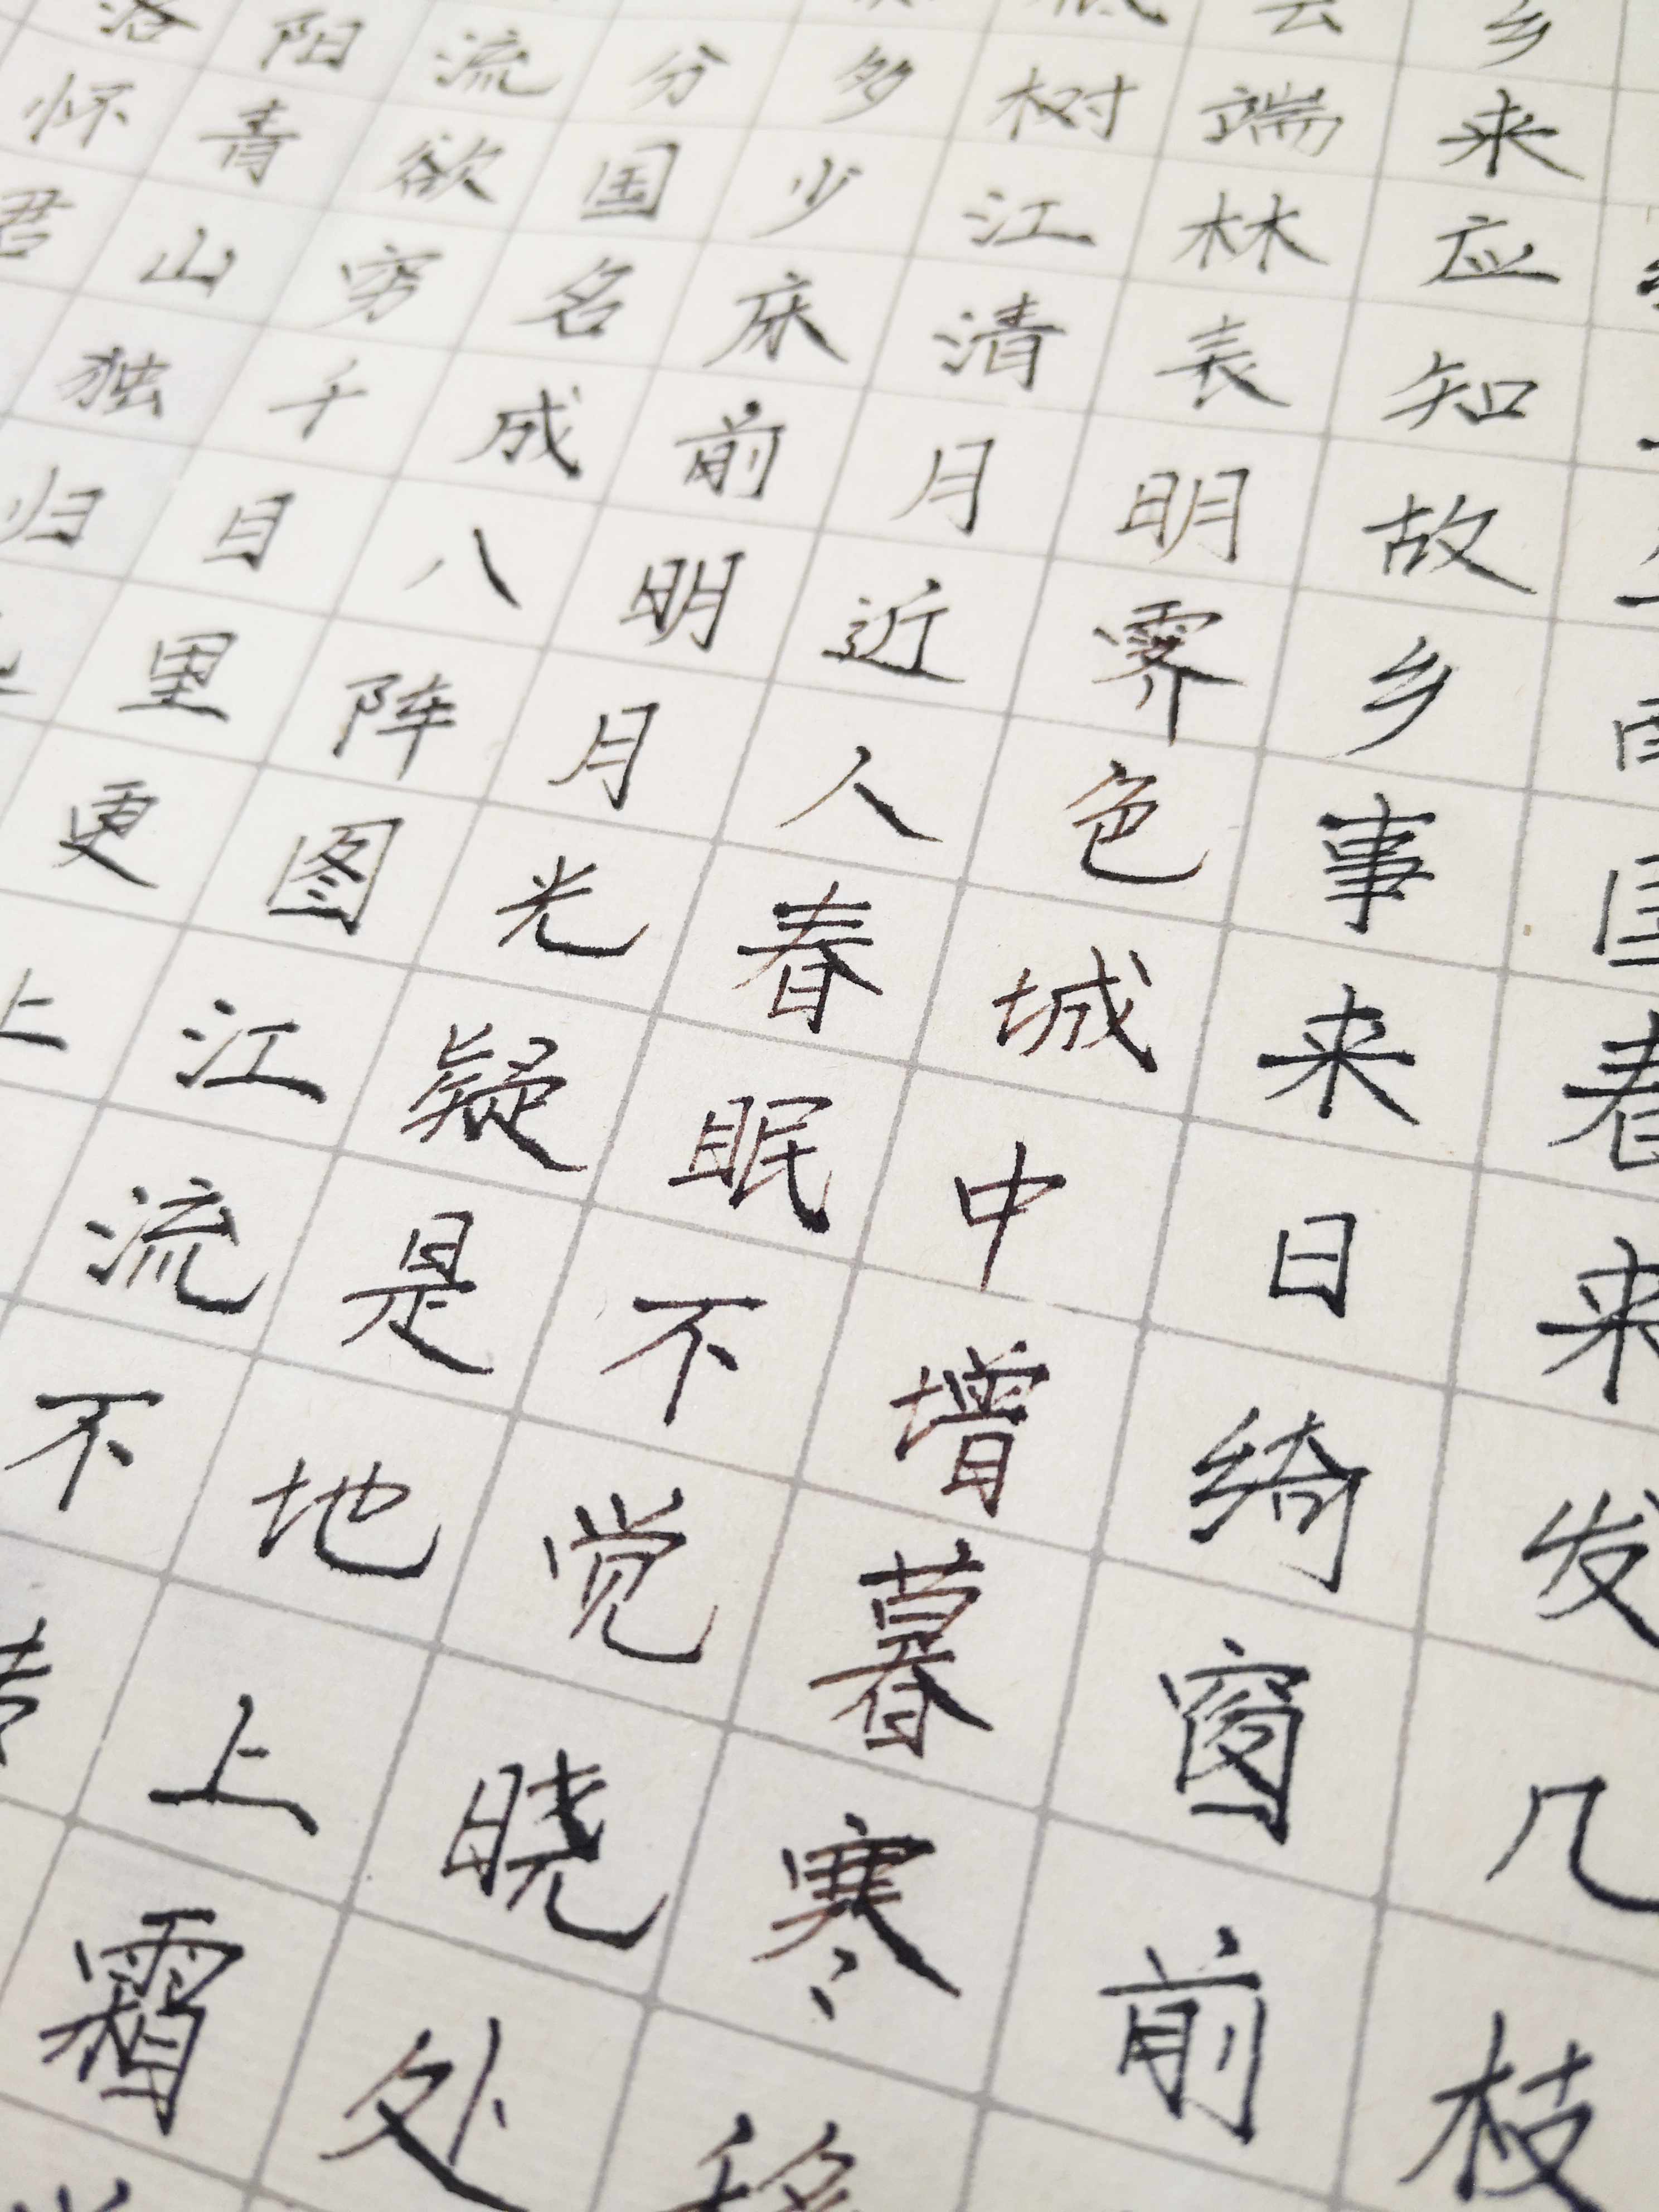 国春来发几枝
乡来应知故乡事来日绮窗前
云端林表明霁色城中增暮寒移
低树江清月近人春眠不觉晓处
多少床前明月光疑是地上霜
分国名成八阵图江流不转
流欲穷千目里更上
阳青山独归
洛怀君